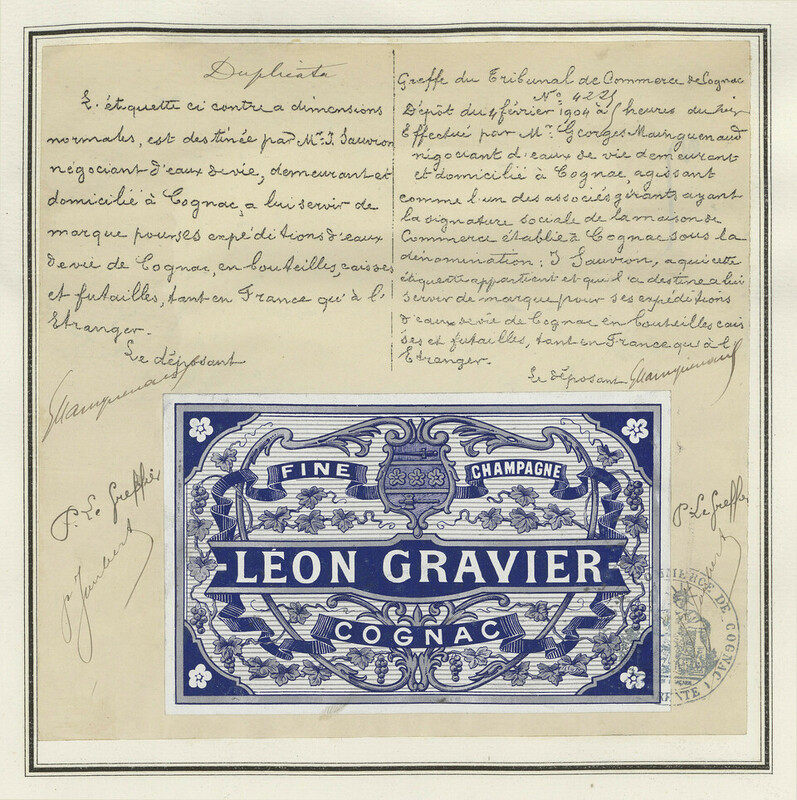 Duplicata
L'étiquette ci contre a dimensions
normales, est destinée par Mr. J. Sauvron
négociant d'eaux de vie, demeurant et
domicilié à Cognac, a lui servir de
marque pour ses expéditions d'eaux
de vie de Cognac, en bouteilles, caisses
et futailles, tant en France qu'à l'
Etranger.
Le déposant
GMainguenaud
P. Le Greffier
Greffe du Tribunal de Commerce de Cognac
No 4225
Dépôt du 4 février 1904 à 5 heures du soir
Effectué par Mr. Georges Mainguenaud
négociant d'eaux de vie demeurant
et domicilié à Cognac, agissant
comme l'un des associés gérants ayant
la signature sociale de la maison de
Commerce établie à Cognac sous la
dénomination: J Sauvron, a qui cette
étiquette appartient et qui l'a destine a lui
servir de marque pour ses expéditions
d'eaux de vie de Cognac en bouteilles cais
ses et futailles, tant en France qu'à l'
Etranger.
Le déposant GMainguenaud
P. Le Greffier
FINE CHAMPAGNE
LÉON GRAVIER
COGNAC
COMMERCE DE COGNAC